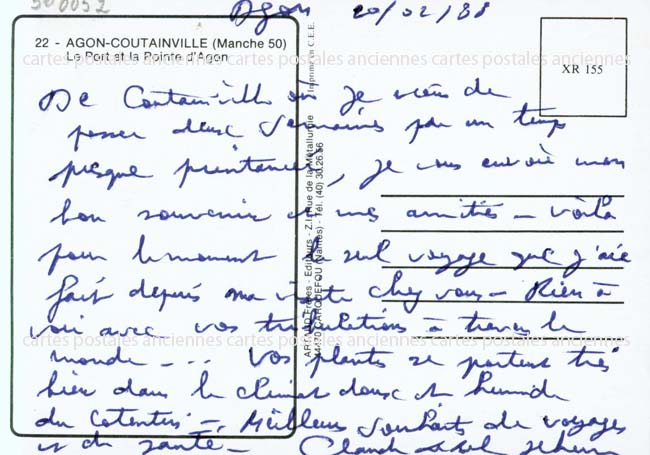 Agon 20/02/88
22 - AGON-COUTAINVILLE (Manche 50)
Le Port et la Pointe d'Agon
cartes postales anciennes cartes postales anciennes cartes postales anciennes
XR 155
De Coutainville où je viens de
passer deux semaines par un temps
presque printanier, je vous envoie mon
bon souvenir et mes amitiés - Voilà
pour le moment le seul voyage que j'aie
fait depuis ma visite chez vous - Rien à
voir avec vos tribulations à travers le
cartes postales anciennes cartes postales anciennes cartes postales anciennes
monde - ... Vos plants se portent très
bien dans le climat doux et humide
du Cotentin -. Meilleurs souhaits de voyages
et de santé -
ARTAUD Frères - Editeurs - Z.I. Rue de la Métallurgie
44470 CARQUEFOU (Nantes) - Tél. (40) 30.26.56
Imprimé en C.E.E.